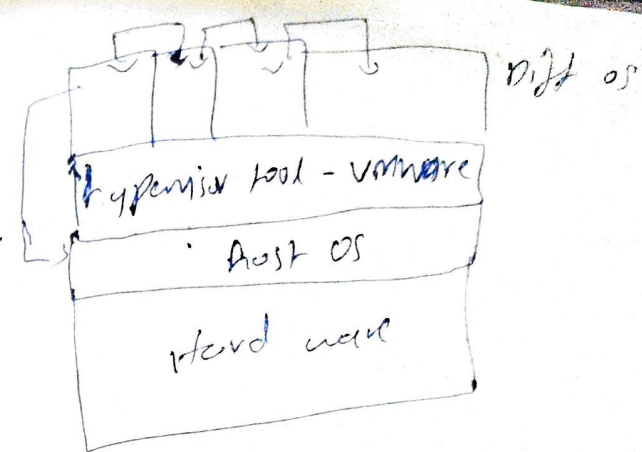 Diff os
Hypervisor tool - vmware
Host OS
Hard ware